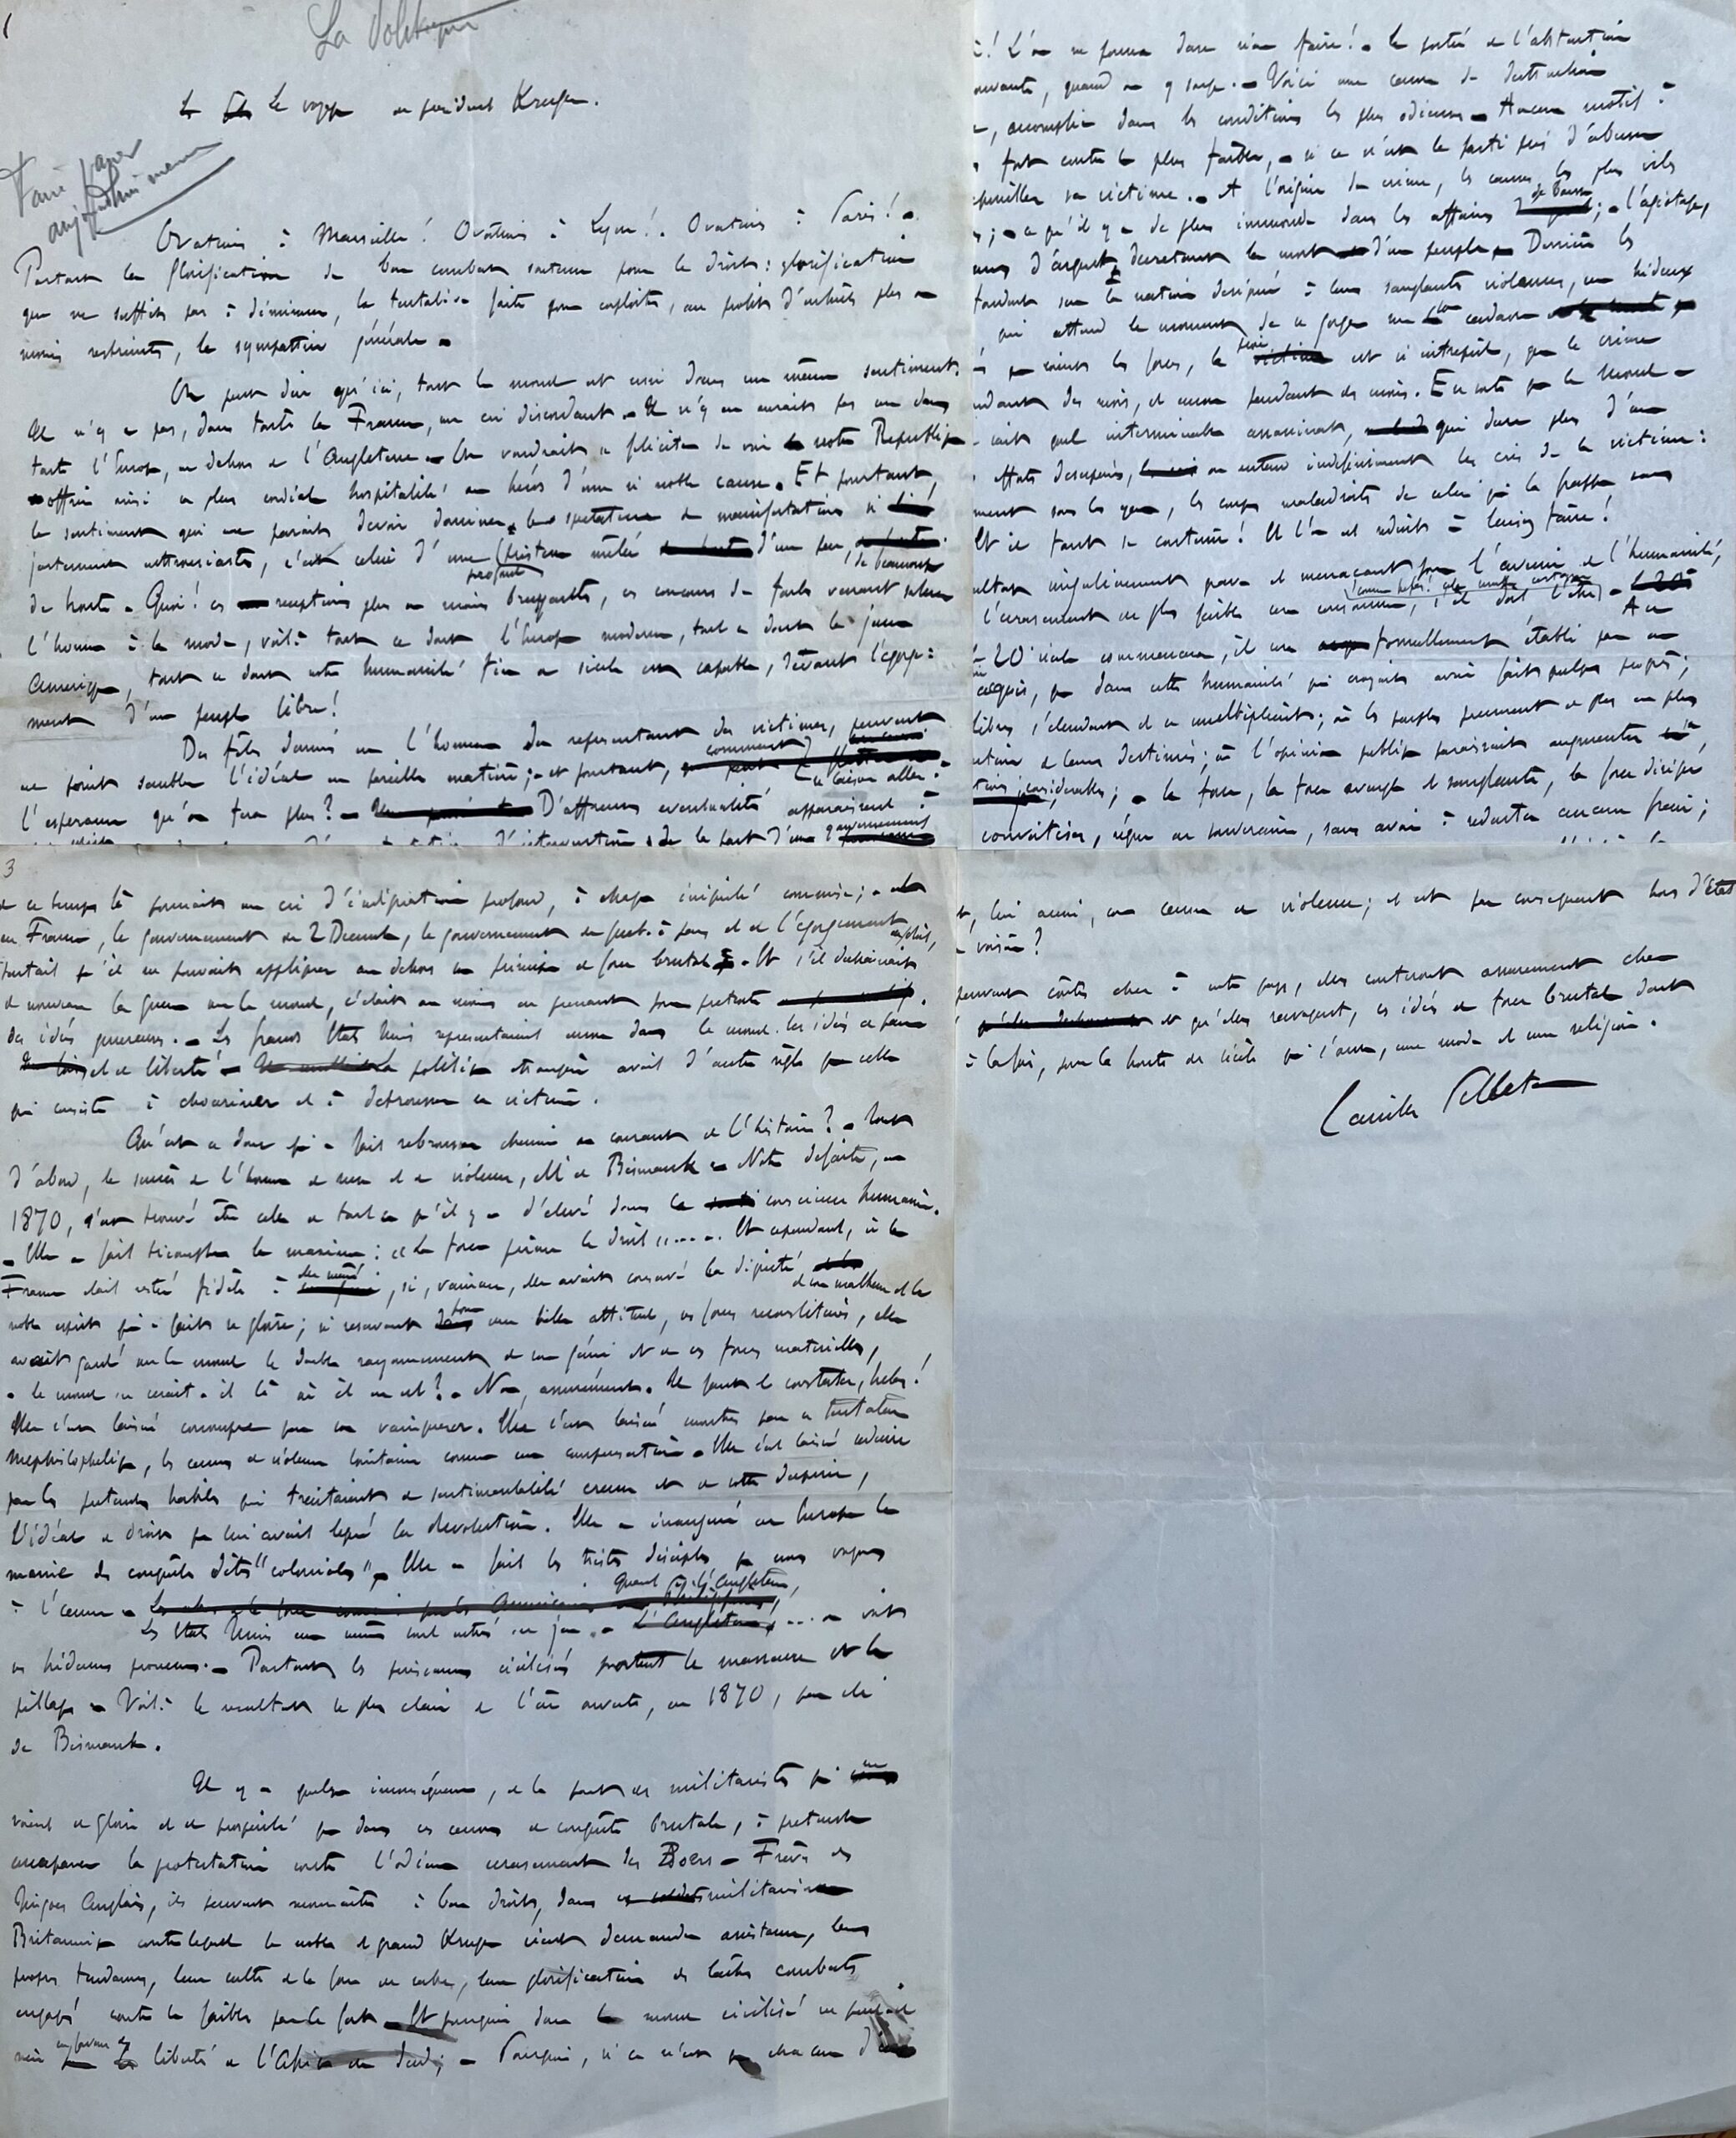 1
La Politique
Le voyage du président Kruger.
Faire passer
aujourd'hui même
Ovations à Marseille! Ovations à Lyon! Ovations à Paris! -
Partout la glorification du bon combat soutenu pour le droit: glorification
que ne suffit pas à diminuer, la tentative faite pour exploiter, au profit d'intérêts plus ou
moins restreints, la sympathie générale -
On peut dire qu'ici, tout le monde est uni dans un même sentiment.
Il n'y a pas, dans toute la France, un cri discordant. Il n'y en aurait pas un dans
toute l'Europe, en dehors de l'Angleterre - On voudrait se féliciter de voir notre République
offrir ainsi la plus cordiale hospitalité au héros d'une si noble cause. Et pourtant,
le sentiment qui me paraît devoir dominer, au spectacle de manifestations si
justement enthousiastes, c'est celui d'une tristesse profonde mêlée d'un peu, de beaucoup
de honte - Quoi! ces réceptions plus ou moins bruyantes, ces concours de foules venant saluer
l'homme à la mode, voilà tout ce dont l'Europe moderne, tout ce dont la jeune
Amérique, tout ce dont notre humanité fin de siècle est capable, devant l'égorge-
ment d'un peuple libre!
Des fêtes données en l'honneur du représentant des victimes, peuvent
ne point sembler l'idéal en pareille matière; - et pourtant, comment se laisser aller à
l'espérance qu'on fera plus? - D'affreuses éventualités apparaissent à
d'intervention de la part d'un gouvernement
! L'on ne pourra donc rien faire! - la portée de l'abstention
, quand on y songe. - Voici une œuvre de destruction
, accomplie dans les conditions les plus odieuses - Aucun motif à
fort contre le plus faible, - si ce n'est le parti pris d'abuser
sa victime. - A l'origine du crime, les causes les plus viles
; - ce qu'il y a de plus immonde dans les affaires de bourse; - l'agiotage,
d'argent, décrétant la mort d'un peuple - Derrière les
fondant sur la nation désignée à leurs sanglantes violences, un hideux
qui attend le moment de se gorger sur son cadavre
les forces, la proie est si intrépide, que le crime
des mois, et encore pendant des mois. En sorte que le monde
cet interminable assassinat, qui dure plus d'un
efforts désespérés, on entend indéfiniment les cris de la victime:
sous les yeux, les coups maladroits de celui qui la frappe sans
Et il faut se contenir! Et l'on est réduit à laisser faire!
singulièrement grave et menaçant pour l'avenir de l'humanité,
l'écrasement du plus faible est consommé, (comme hélas! cela semble certain) s'il doit l'être - Au
20e siècle commencera, il sera formellement établi par un
, que dans cette humanité qui croyait avoir fait quelque progrès;
libres s'étendent et se multiplient; où les peuples prennent de plus en plus
de leurs destinées; où l'opinion publique paraissait augmenter
considérables; - la force, la force aveugle et sanglante, la force dirigée
convoitise, règne en souveraine, sans avoir à redouter aucun frein;
3
de ce temps là poussait un cri d'indignation profond, à chaque iniquité commise; -
en France, le gouvernement du 2 Décembre, le gouvernement du guet-à-pens et de l'égorgement
qu'il ne pouvait appliquer au dehors son principe de force brutale. Et s'il déchaînait
de nouveau la guerre sur le monde, c'était au moins en prenant pour prétexte
des idées généreuses. - Les français Etats Unis représentaient encore dans le monde les idées de paix
et de liberté - politique étrangère avait d'autre règle que celle
qui consiste à chouriner et à détrousser sa victime.
Qu'est-ce donc qui a fait rebrousser chemin au courant de l'histoire? - Tout
d'abord, le succès de l'homme de ruse et de violence, M. de Bismarck - Notre défaite, en
1870, s'est trouvé être celle de tout ce qu'il y a d'élevé dans la conscience humaine.
- Elle a fait triompher la maxime: « La force prime le droit ».... Et cependant, si la
France était restée fidèle à elle même, si, vaincue, elle avait conservé la dignité de son malheur et le
noble esprit qui a fait sa gloire; si réservant dans une belle attitude, ses forces reconstituées, elle
avait gardé sur le monde le double rayonnement de son génie et de ses forces matérielles,
- le monde en serait-il là où il en est? - Non, assurément. Il faut le constater, hélas!
Elle s'est laissé corrompre par son vainqueur. Elle s'est laissé montrer par ce tentateur
Mephistophélique, les œuvres de violence lointaine comme une compensation - Elle s'est laissé séduire
par les prétendus habiles qui traitaient de sentimentalité creuse et de sotte duperie,
l'idéal de droit que lui avait légué la Révolution. Elle a inauguré en Europe la
manie des conquêtes dites "coloniales". Elle a fait les tristes disciples que nous voyons
à l'œuvre -
Les Etats Unis eux mêmes sont entrés en jeu. - Quant à l'Angleterre, .... on voit
ses hideuses prouesses. - Partout les puissances civilisées portent le massacre et le
pillage - Voilà le résultat le plus clair de l'ère ouverte, en 1870, par M.
de Bismarck.
Il y a quelque inconséquence, de la part des militaristes qui ne
voient de gloire et de prospérité que dans ces œuvres de conquête brutale, à prétendre
accaparer la protestation contre l'odieux écrasement des Boers - Frères des
Jingoes Anglais, ils peuvent reconnaître à bon droit, dans ce militarisme
Britannique contre lequel le noble et grand Kruger vient demander assistance, leurs
propres tendances, leur culte de la force du sabre, leur glorification des lâches combats
engagés contre le faible par le fort - Et pourquoi donc le monde civilisé ne peut-il
rien en faveur de la liberté de l'Afrique du Sud; - Pourquoi, si ce n'est que chacun d'eux
, lui aussi, son œuvre de violence; et est par conséquent hors d'état
voisin?
peuvent coûter cher à notre pays, elles coûteront assurément cher
et qu'elles ravagent, ces idées de force brutale dont
à la fois, pour la honte du siècle qui s'ouvre, une mode et une religion.
Camille Pelletan